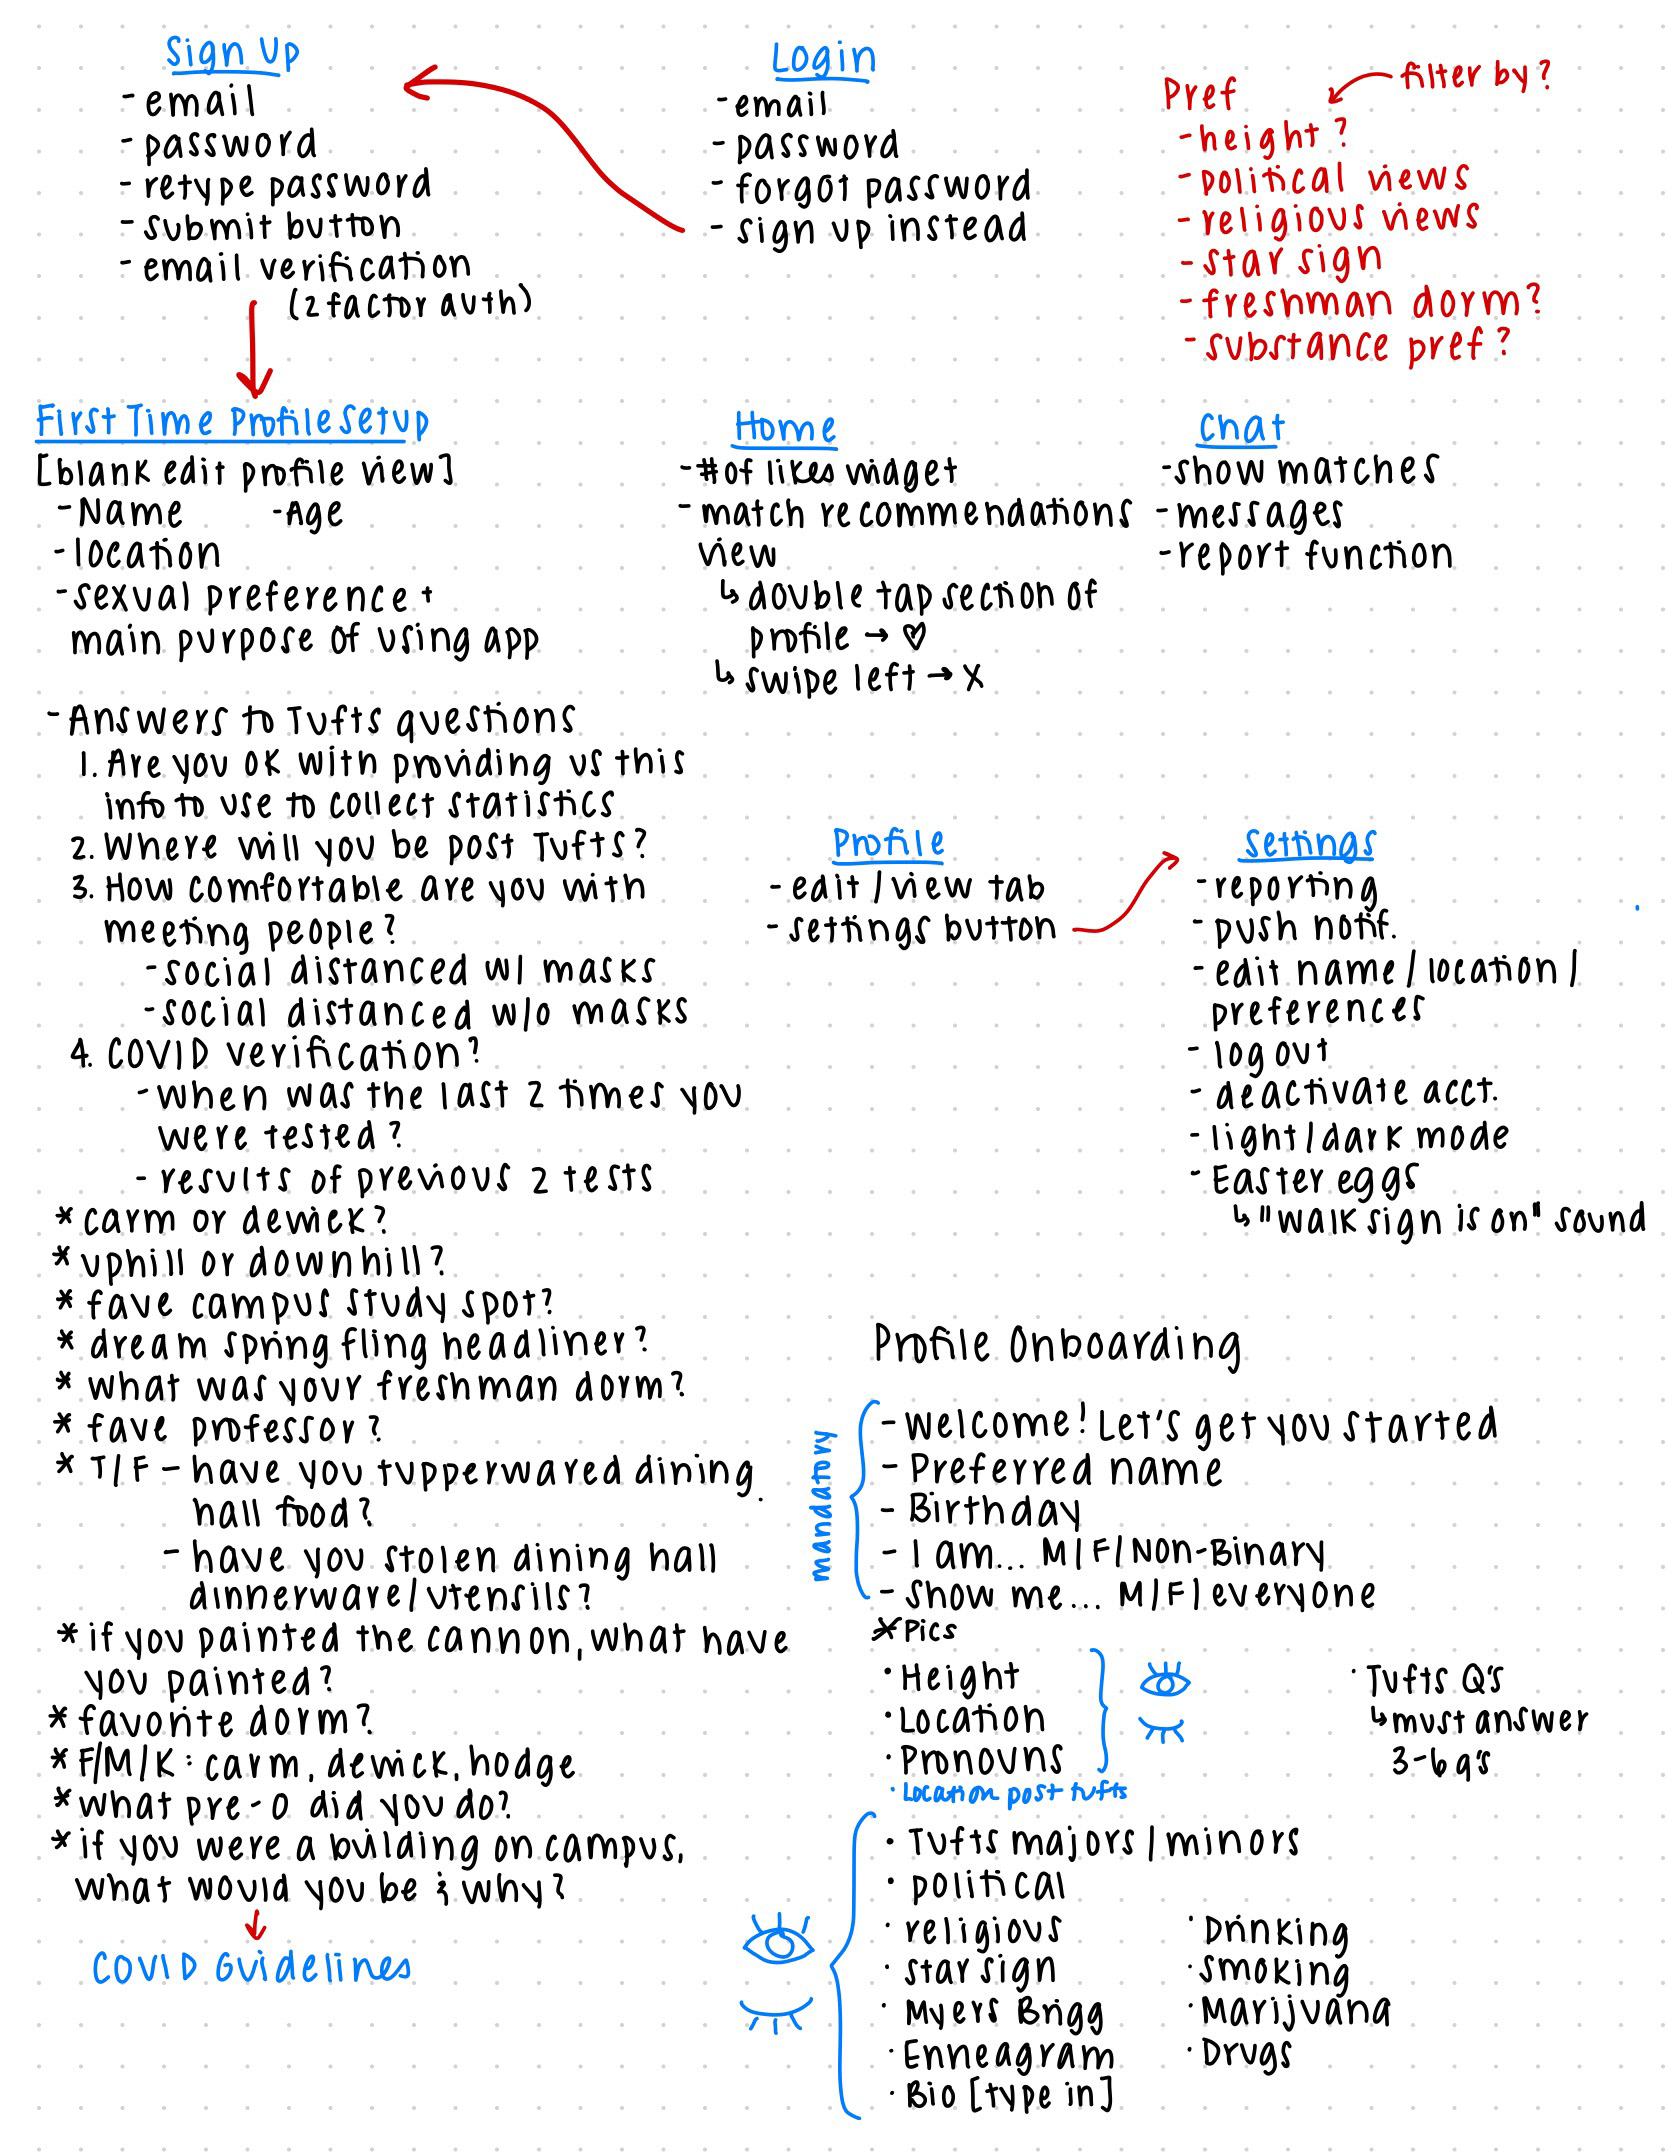 Sign Up
- email
- password
- retype password
- submit button
- email verification
(2 factor auth)
Login
- email
- password
- forgot password
- sign up instead
filter by?
Pref
- height?
- political views
- religious views
- star sign
- freshman dorm?
- substance pref?
First Time Profile Setup
[blank edit profile view]
- Name - Age
- location
- sexual preference +
main purpose of using app
- Answers to Tufts questions
1. Are you OK with providing us this
info to use to collect statistics
2. Where will you be post Tufts?
3. How comfortable are you with
meeting people?
- social distanced w/ masks
- social distanced w/o masks
4. COVID verification?
- when was the last 2 times you
were tested?
- results of previous 2 tests
* carm or dewick?
* uphill or downhill?
* fave campus study spot?
* dream spring fling headliner?
* what was your freshman dorm?
* fave professor?
* T/F - have you tupperwared dining
hall food?
- have you stolen dining hall
dinnerware/utensils?
* if you painted the cannon, what have
you painted?
* favorite dorm?
* F/M/K: carm, dewick, hodge
* what pre-o did you do?
* if you were a building on campus,
what would you be & why?
COVID Guidelines
Home
- # of likes widget
- match recommendations
view
↳ double tap section of
profile → ♡
↳ swipe left → X
Chat
- show matches
- messages
- report function
Profile
- edit / view tab
- settings button
Settings
- reporting
- push notif.
- edit name / location /
preferences
- log out
- deactivate acct.
- light/dark mode
- Easter eggs
↳ "walk sign is on" sound
Profile Onboarding
mandatory
- Welcome! Let's get you started
- Preferred name
- Birthday
- I am... M/F/Non-Binary
- Show me... M/F/everyone
* Pics
• Height
• Location
• Pronouns
• Location post tufts
• Tufts Q's
↳ must answer
3-6 q's
• Tufts majors / minors
• political
• religious
• star sign
• Myers Brigg
• Enneagram
• Bio [type in]
• Drinking
• Smoking
• Marijuana
• Drugs